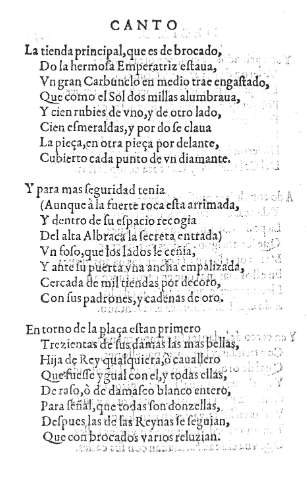 CANTO
La tienda principal, que es de brocado,
Do la hermosa Emperatriz estaua,
Vn gran Carbunclo en medio trae engastado,
Que como el Sol dos millas alumbraua,
Y cien rubies de vno, y de otro lado,
Cien esmeraldas, y por do se claua
La pieça, en otra pieça por delante,
Cubierto cada punto de vn diamante.
Y para mas seguridad tenia
(Aunque à la fuerte roca esta arrimada,
Y dentro de su espacio recogia
Del alta Albraca la secreta entrada)
Vn foso, que los lados le ceñia,
Y ante su puerta vna ancha empalizada,
Cercada de mil tiendas por decoro,
Con sus padrones, y cadenas de oro.
En torno de la plaça estan primero
Trezientas de sus damas las mas bellas,
Hija de Rey qualquiera, ò cauallero
Que fuesse ygual con el, y todas ellas,
De raso, ò de damasco blanco entero,
Para señal, que todas son donzellas,
Despues, las de las Reynas se seguian,
Que con brocados varios reluzian.